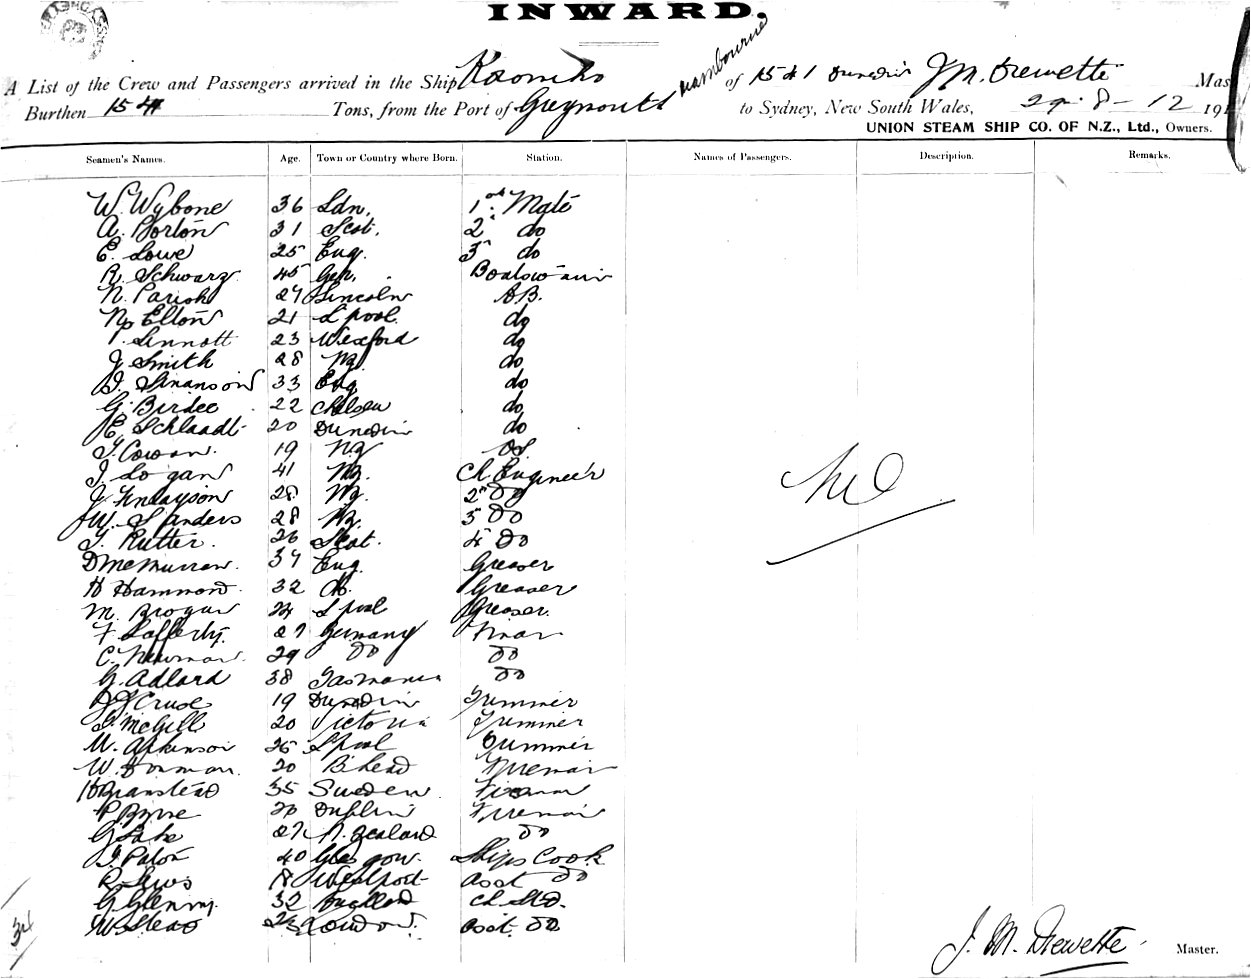 INWARD.
A List of the Crew and Passengers arrived in the Ship of 1541 Dunedin J M. Drewette Mas
Burthen 1541 Tons, from the Port of Greymouth to Sydney, New South Wales, 29-8-12 191
UNION STEAM SHIP CO. OF N.Z., Ltd., Owners.
Seamen's Names. Age. Town or Country where Born. Station. Names of Passengers. Description. Remarks.
W. Wybone 36 Ldn. 1st Mate
A. Borton 31 Scot. 2 do
E. Lowe 25 Eng. 3 do
R. Schwarz 45 Ger. Boatswain
N. Parish 27 Lincoln AB.
Elton 21 Lpool. do
Sinnott 23 Wexford do
J. Smith 28 NZ do
Swanson 33 Eng do
G. Birdee 22 Chelsea do
E. Schlaadt 20 Dunedin do
T. Cowan. 19 NZ OS.
J. Logan 41 NZ. Ch Engineer
J. Finlayson 28 NZ. 2nd Do
J W. Sanders 28 NZ. 3 Do
T. Rutter. 26 Scot. 4 Do
D McMurran. 37 Eng. Greaser
H Hammond. 32 Greaser
M. Brogan 24 Lpool Greaser.
F. Lafferty. 27 Germany Fireman
C. Newman. 29 Do Do
G. Adlard 38 Tasmania Do
Cruse 19 Dunedin Trimmer
McGill 20 Victoria Trimmer
M. Atkinson 25 Lpool Trimmer
W. 20 B'head Fireman
H Branstead 35 Sweden Fireman
P. Byrne 20 Dublin Fireman
G Lake 27 N. Zealand Do
J. Paton 40 Glasgow. Ships Cook
R. Lewis 18 Westport asst Do
G. Glenny. 32 England Ch. Std.
W. Stead 23 London. asst. Do
Nil
34
J. M. Drewette Master.